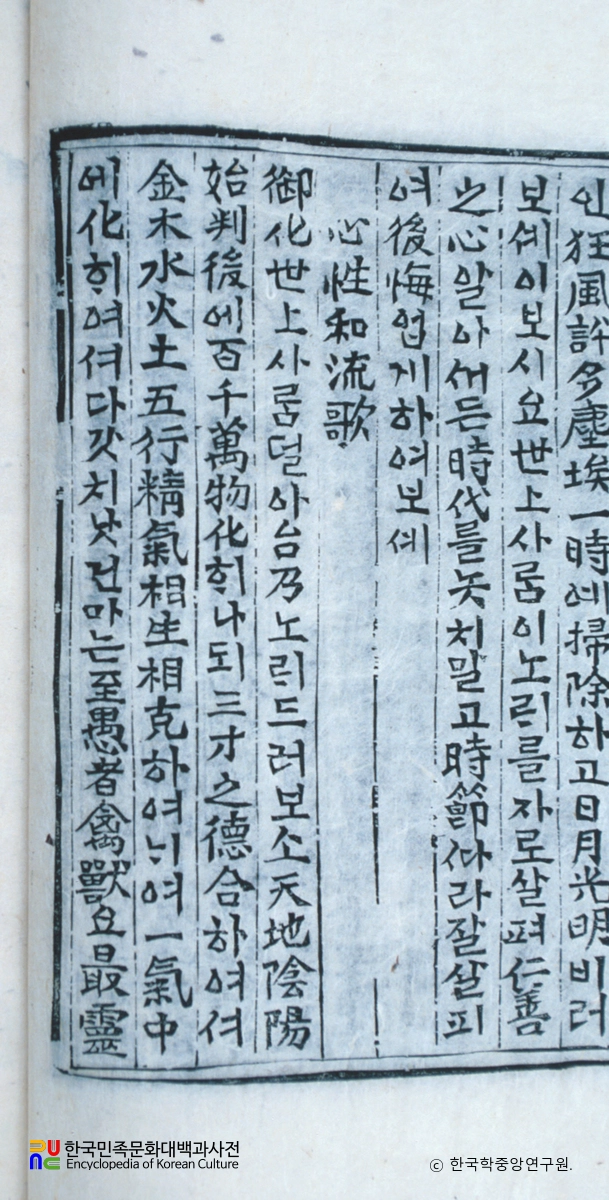 인狂風許多塵埃一時에掃除하고日月光明비러
보셰이보시요世上사룸이노ᄅᆡ를자로살펴仁善
之心알아셔든時代를놋치말고時節따라잘살피
여後悔업게하여보셰
心性和流歌
御化世上사룸덜아台乃노ᄅᆡ드러보소天地陰陽
始判後에百千萬物化ᄒᆡ나되三才之德合하여셔
金木水火土五行精氣相生相克하여ᄂᆡ여一氣中
에化ᄒᆡ여셔다갓치낫건마는至愚者禽獸요最靈
한국민족문화대백과사전
Encyclopedia of Korean Culture
ⓒ 한국학중앙연구원.